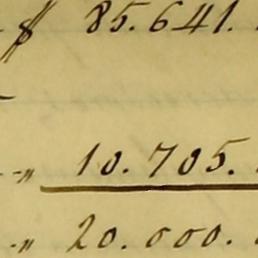 $ 85.641.
" 10.705.
" 20.000.